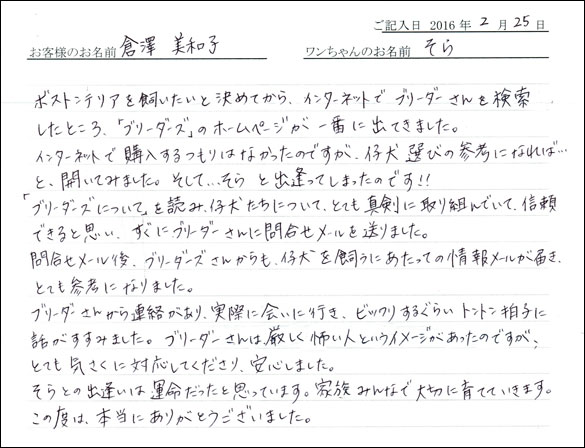 ご記入日 2016 年 2 月 25 日
お客様のお名前 倉澤 美和子 ワンちゃんのお名前 そら
ボストンテリアを飼いたいと決めてから、インターネットで ブリーダーさんを検索
したところ、「ブリーダーズ」のホームページが一番に出てきました。
インターネットで購入するつもりはなかったのですが、仔犬選びの参考になれば…
と、開いてみました。そして…そら と出逢ってしまったのです!!
「ブリーダーズについて」を読み、仔犬たちについて、とても真剣に取り組んでいて、信頼
できると思い、すぐにブリーダーさんに問合せメールを送りました。
問合せメール後、ブリーダーズさんからも、仔犬を飼うにあたっての情報メールが届き、
とても参考になりました。
ブリーダーさんから連絡があり、実際に会いに行き、ビックリするぐらい トントン拍子に
話がすすみました。ブリーダーさんは厳しく怖い人というイメージがあったのですが、
とても気さくに対応してくださり、安心しました。
そらとの出逢いは運命だったと思っています。家族みんなで大切に育てていきます。
この度は、本当にありがとうございました。